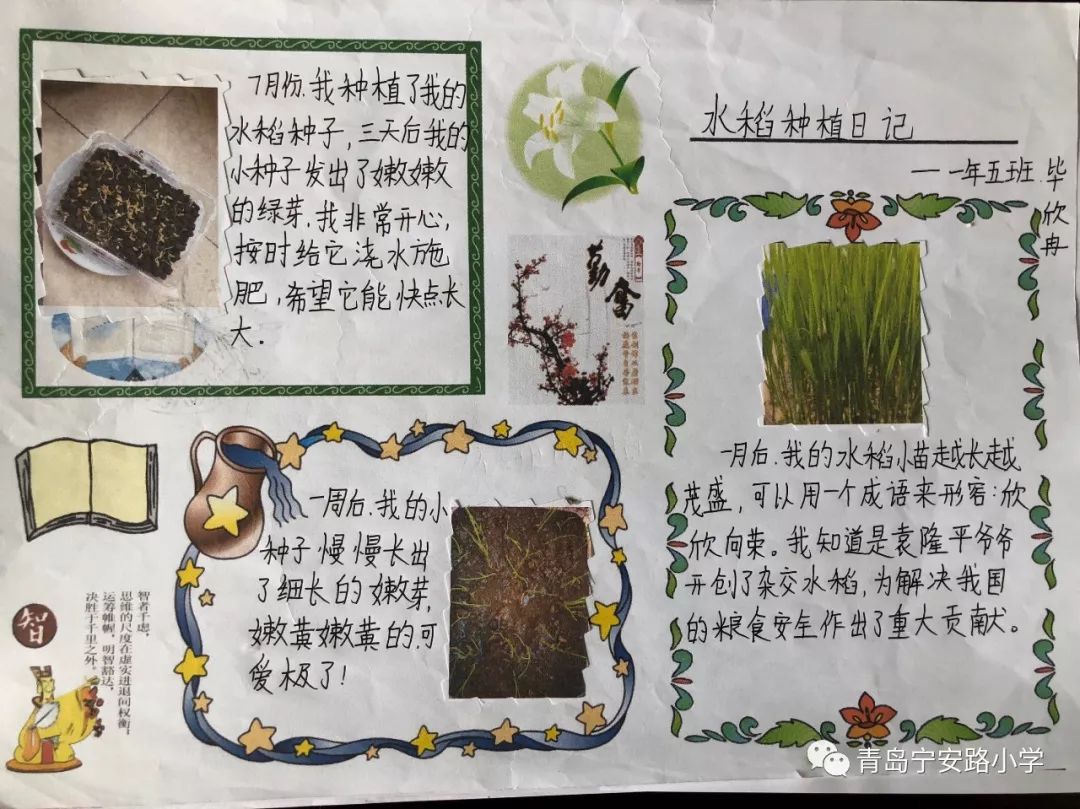 水稻种植日记
——一年五班.毕
欣
冉
7月份.我种植了我的
水稻种子,三天后我的
小种子发出了嫩嫩
的绿芽.我非常开心,
按时给它浇水施
肥,希望它能快点长
大.
勤奋
一周后.我的小
种子慢慢长出
了细长的嫩芽,
嫩黄嫩黄的.可
爱极了!
一月后.我的水稻小苗越长越
茂盛,可以用一个成语来形容:欣
欣向荣。我知道是袁隆平爷爷
开创了杂交水稻,为解决我国
的粮食安全作出了重大贡献。
智
智者千虑,
思维的尺度在虚实进退间权衡,
运筹帷幄,明智豁达,
决胜于千里之外。
青岛宁安路小学